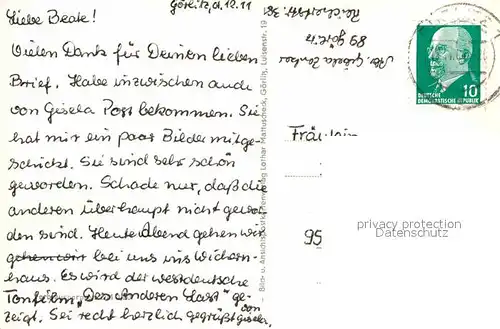 Görlitz, d. 12.11
Liebe Beate!
Vielen Dank für Deinen lieben
Brief. Habe inzwischen auch
von Gisela Post bekommen. Sie
hat mir ein paar Bilder mitge-
schickt. Sie sind sehr schön
geworden. Schade nur, daß die
anderen überhaupt nicht gewor-
den sind. Heute Abend gehen wir
gehen wir bei uns ins Wichern-
haus. Es wird der westdeutsche
Tonfilm „Des Anderen Last" ge-
zeigt. Sei recht herzlich gegrüßt von
Gisela,
Bild- u. Ansichtskartenverlag Lothar Mattuscheck, Görlitz, Luisenstr. 19
Abs. Gisela
89 Görlitz
DEUTSCHE
DEMOKRATISCHE REPUBLIK
10
Fräulein
95
privacy protection
Datenschutz